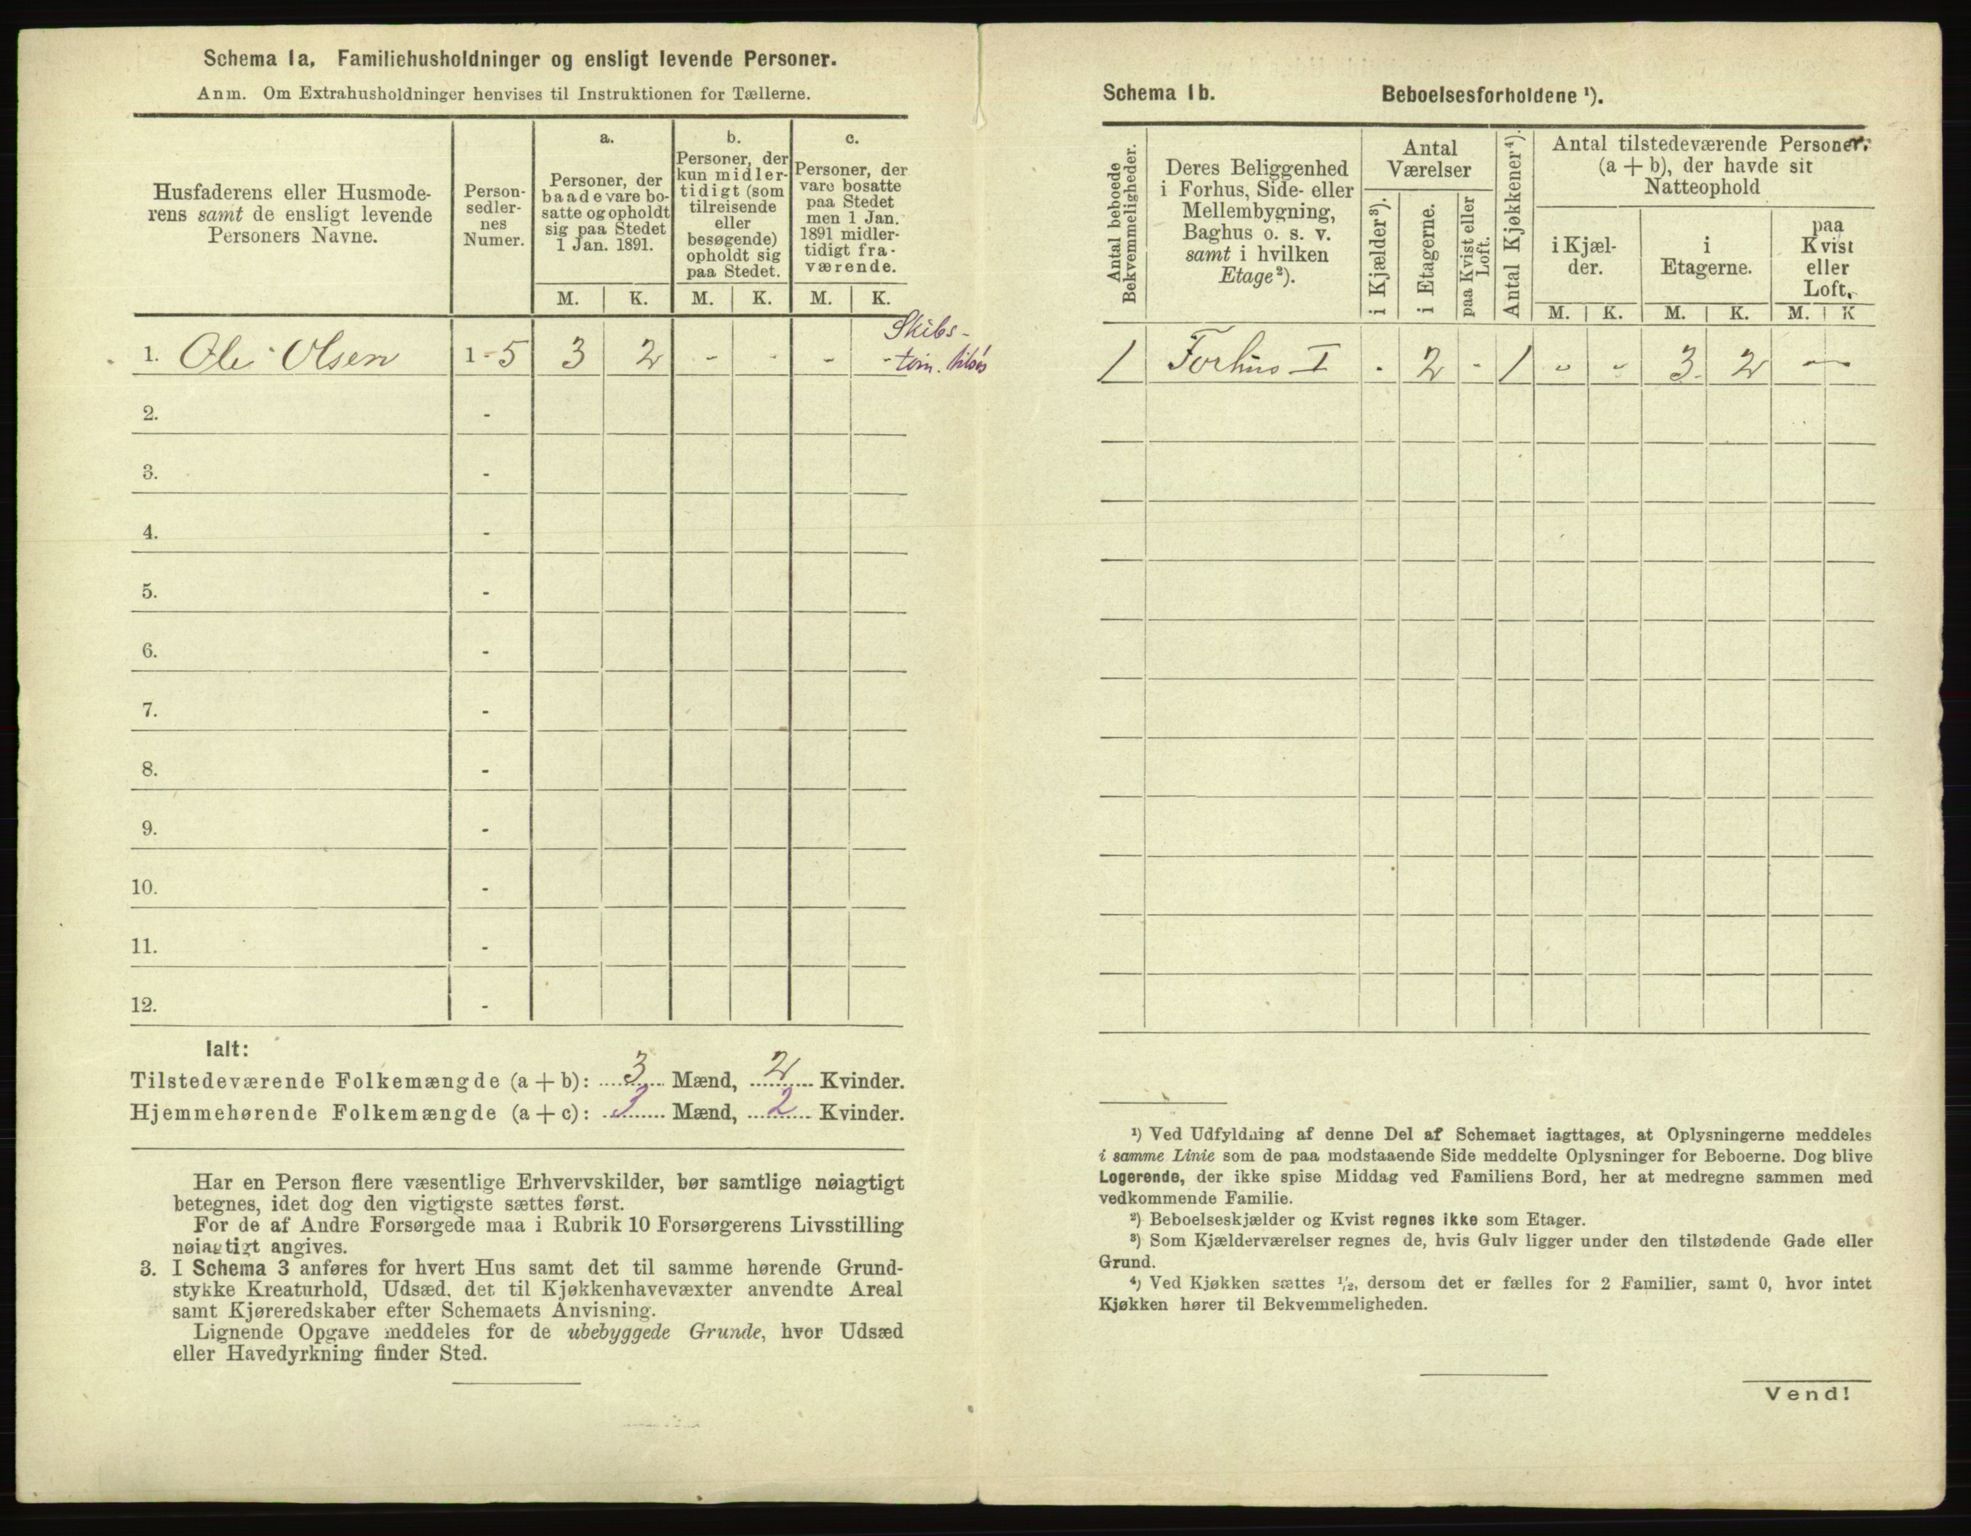 Schema 1a. Familiehusholdninger og ensligt levende Personer.
Anm. Om Extrahusholdninger henvises til Instruktionen for Tællerne.
Husfaderens eller Husmode-
rens samt de ensligt levende
Personers Navne.
Person-
sedler-
nes
Numer.
a.
Personer, der
baade vare bo-
satte og opholdt
sig paa Stedet
1 Jan. 1891.
M. K.
b.
Personer, der
kun midler-
tidigt (som
tilreisende
eller
besøgende)
opholdt sig
paa Stedet.
M. K.
c.
Personer, der
vare bosatte
paa Stedet
men 1 Jan.
1891 midler-
tidigt fra-
værende.
M. K.
Skibs-
1. Ole Olsen 1-5 3 2 - - - - tøm.
2. -
3. -
4. -
5. -
6. -
7. -
8. -
9. -
10. -
11. -
12. -
Ialt:
Tilstedeværende Folkemængde (a + b): 3 Mænd, 2 Kvinder.
Hjemmehørende Folkemængde (a + c): 3 Mænd, 2 Kvinder.
Har en Person flere væsentlige Erhvervskilder, bør samtlige nøiagtigt
betegnes, idet dog den vigtigste sættes først.
For de af Andre Forsørgede maa i Rubrik 10 Forsørgerens Livsstilling
nøiagtigt angives.
3. I Schema 3 anføres for hvert Hus samt det til samme hørende Grund-
stykke Kreaturhold, Udsæd, det til Kjøkkenhavevæxter anvendte Areal
samt Kjøreredskaber efter Schemaets Anvisning.
Lignende Opgave meddeles for de ubebyggede Grunde, hvor Udsæd
eller Havedyrkning finder Sted.
Schema 1b. Beboelsesforholdene ¹).
Antal beboede
Bekvemmeligheder.
Deres Beliggenhed
i Forhus, Side- eller
Mellembygning,
Baghus o. s. v.
samt i hvilken
Etage²).
Antal
Værelser
i Kjælder³).
i Etagerne.
paa Kvist eller
Loft.
Antal Kjøkkener⁴).
Antal tilstedeværende Personer,
(a + b), der havde sit
Natteophold
i Kjæl-
der.
i
Etagerne.
paa
Kvist
eller
Loft.
M. K. M. K. M. K
1 Forhus I - 2 - 1 - - 3 2 -
¹) Ved Udfyldning af denne Del af Schemaet iagttages, at Oplysningerne meddeles
i samme Linie som de paa modstaaende Side meddelte Oplysninger for Beboerne. Dog blive
Logerende, der ikke spise Middag ved Familiens Bord, her at medregne sammen med
vedkommende Familie.
²) Beboelseskjælder og Kvist regnes ikke som Etager.
³) Som Kjælderværelser regnes de, hvis Gulv ligger under den tilstødende Gade eller
Grund.
⁴) Ved Kjøkken sættes ½, dersom det er fælles for 2 Familier, samt 0, hvor intet
Kjøkken hører til Bekvemmeligheden.
Vend!